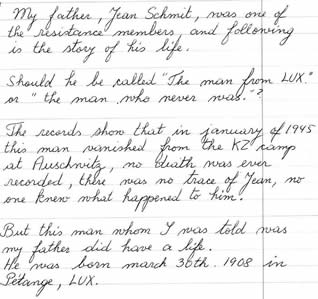 My father, Jean Schmit, was one of
the resistance members, and following
is the story of his life.
Should he be called "The man from LUX."
or "the man who never was."?
The records show that in january of 1945
this man vanished from the KZ camp
at Auschwitz, no death was ever
recorded, there was no trace of Jean, no
one knew what happened to him.
But this man whom I was told was
my father did have a life.
He was born march 30th. 1908 in
Pétange, LUX.